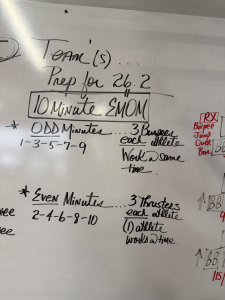 Team'(s) ....
Prep for 26.2
10 Minute EMOM
* ODD Minutes ... 3 Burpees
1-3-5-7-9 each athlete
Work @ same
time.
* Even Minutes .... 3 Thrusters
2-4-6-8-10 each athlete
(1) athlete
works @ time.
RX
Burpee
Jump
Over
Bar
BB
BB